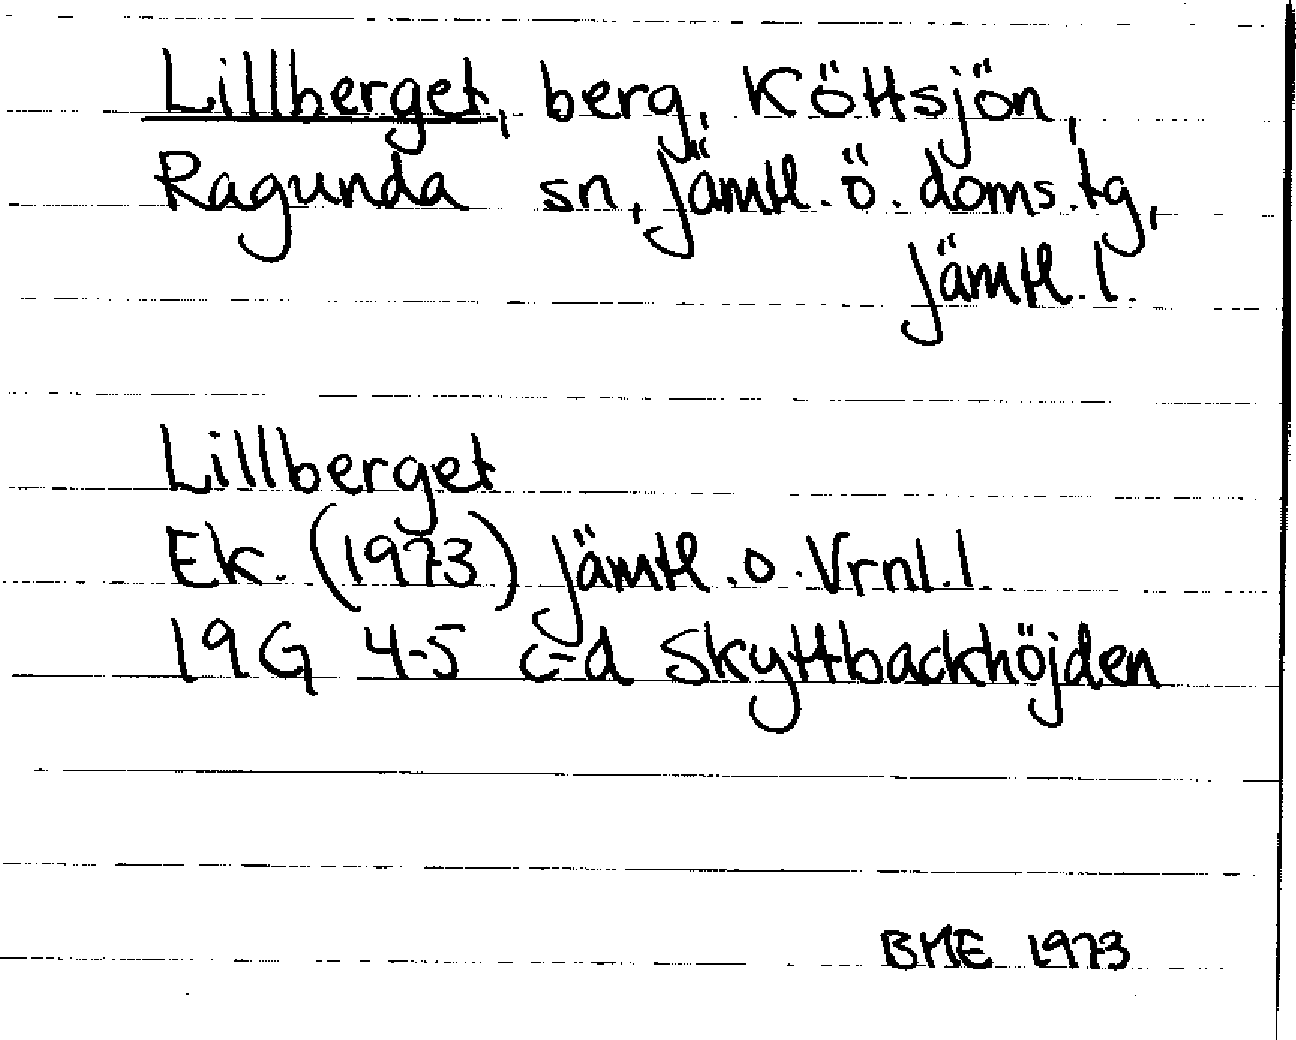 Lillberget, berg, Köttsjön,
Ragunda sn, Jämtl. ö. doms.tg,
Jämtl. l.
Lillberget
Ek. (1973) Jämtl. o. Vrnl. l.
19G 4-5 c-d Skyttbackhöjden
BME 1973